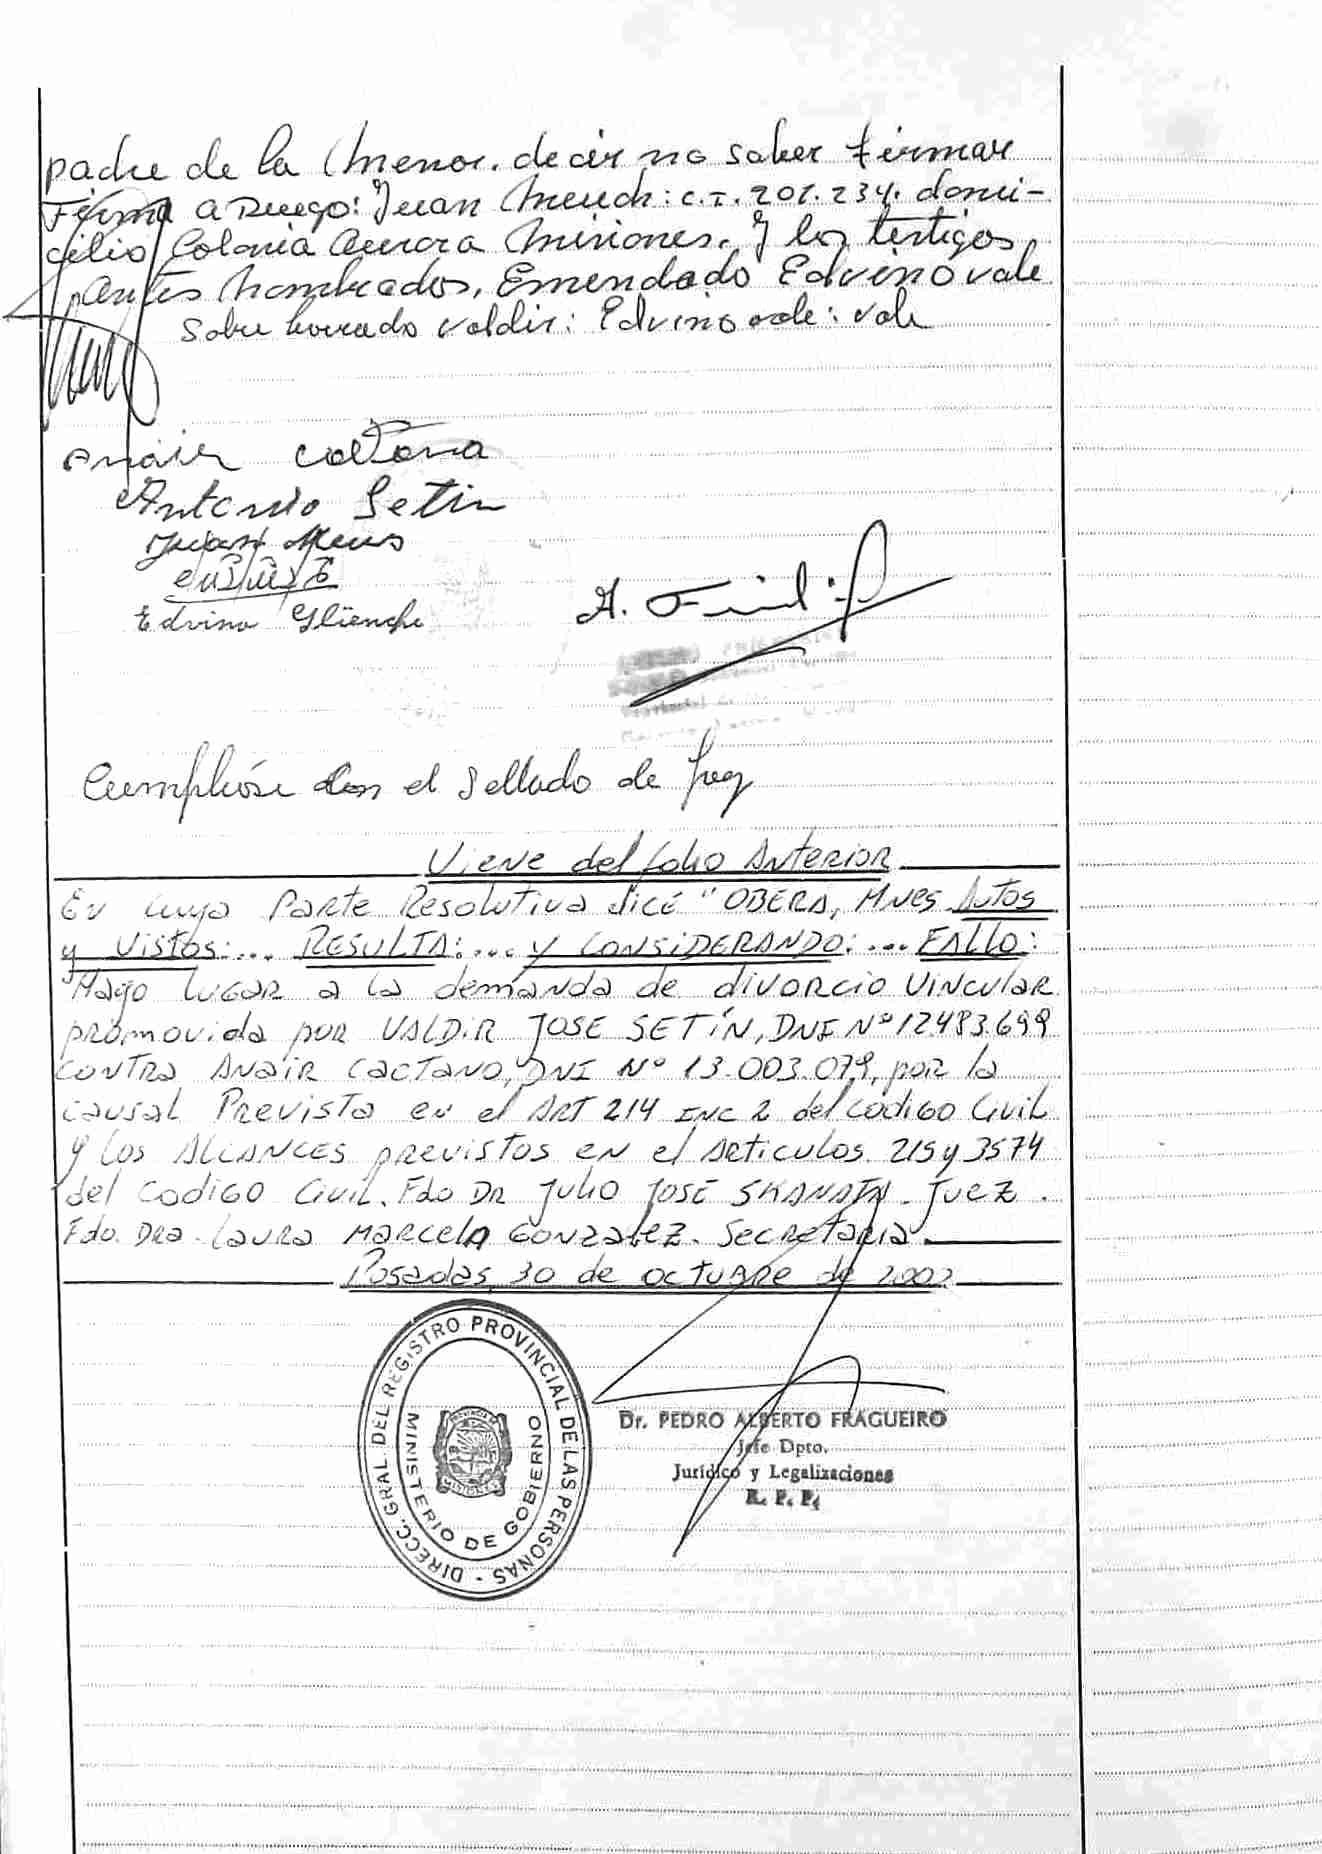 padre de la menor. decir no saber firmar
Firma a Ruego: Juan Meuch: C.I. 201.234. domi-
cilio Colonia Aurora Misiones. Y los testigos
antes nombrados, Emendado Edvino vale
Sobre borrado Valdir: Edvino vale: vale
Anair
Antonio Setin
Juan
Edvino Glienche
Cumplióse con el Sellado de Ley
Viene del folio Anterior
En cuya Parte Resolutiva dice "OBERA, Mnes Autos
y Vistos:... RESULTA:... y CONSIDERANDO:... FALLO:
Hago lugar a la demanda de divorcio Vincular
promovida por VALDIR JOSE SETÍN, DNI Nº 12.483.699
contra ANAIR CAETANO, DNI Nº 13.003.079, por la
causal Prevista en el ART 214 INC 2 del Codigo Civil
y los ALCANCES previstos en el Articulos. 215 y 3574
del Codigo Civil. Fdo DR Julio José SKANATA. Juez.
Fdo. Dra. Laura Marcela Gonzalez. Secretaria.
Posadas, 30 de OCTUBRE de 2002
DIRECC. GRAL DEL REGISTRO PROVINCIAL DE LAS PERSONAS -
MINISTERIO DE GOBIERNO
PROVINCIA DE
MISIONES
Dr. PEDRO ALBERTO FRAGUEIRO
Jefe Dpto.
Jurídico y Legalizaciones
R. P. P.